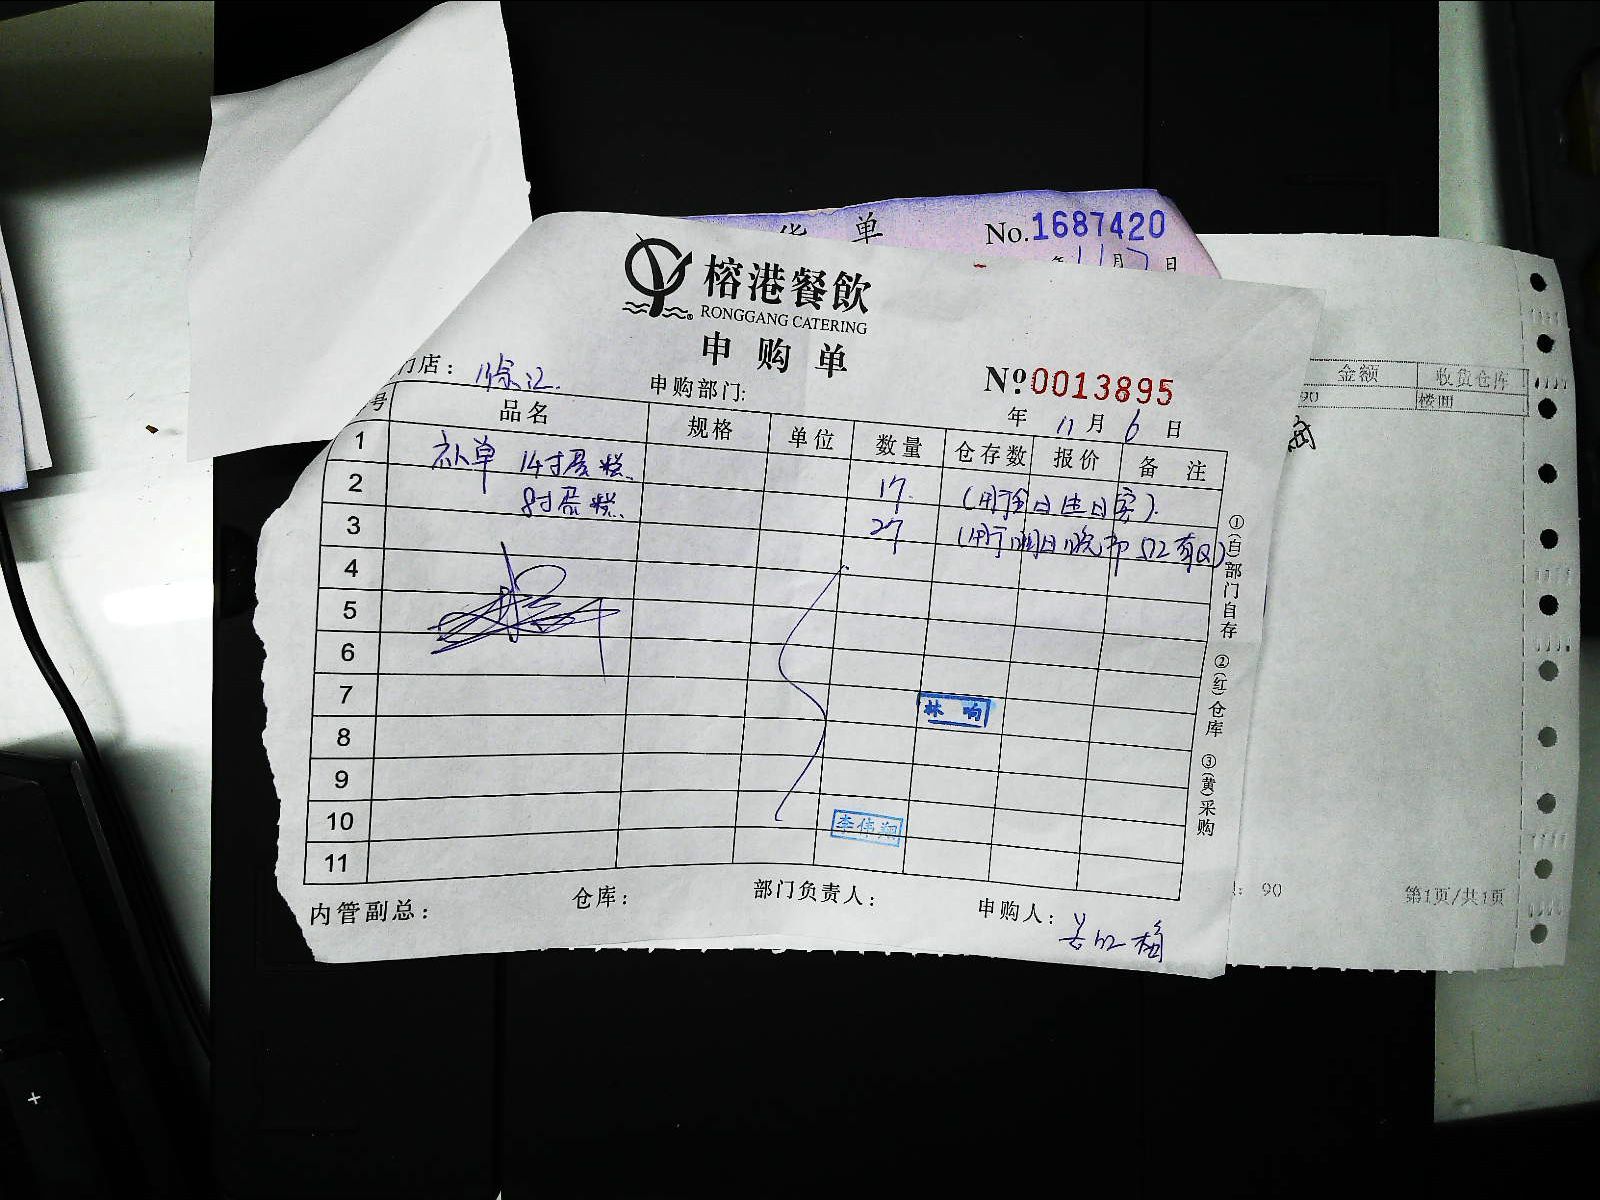 货 单
No.1687420
年 11月7日
榕港餐飲
RONGGANG CATERING
申购单
门店： 徐汇
申购部门:
Nº0013895
年 11 月 6 日
号 品名 规格 单位 数量 仓存数 报价 备 注
1 补单 14寸蛋糕
2 8寸蛋糕 17 (用于今日生日客)
3 27
4
5
6
7
8
9
10
11
林
李伟翔
①(白)部门自存 ②(红)仓库 ③(黄)采购
内管副总： 仓库： 部门负责人： 申购人：
金额 收货仓库
90 楼面
90
第1页/共1页
+